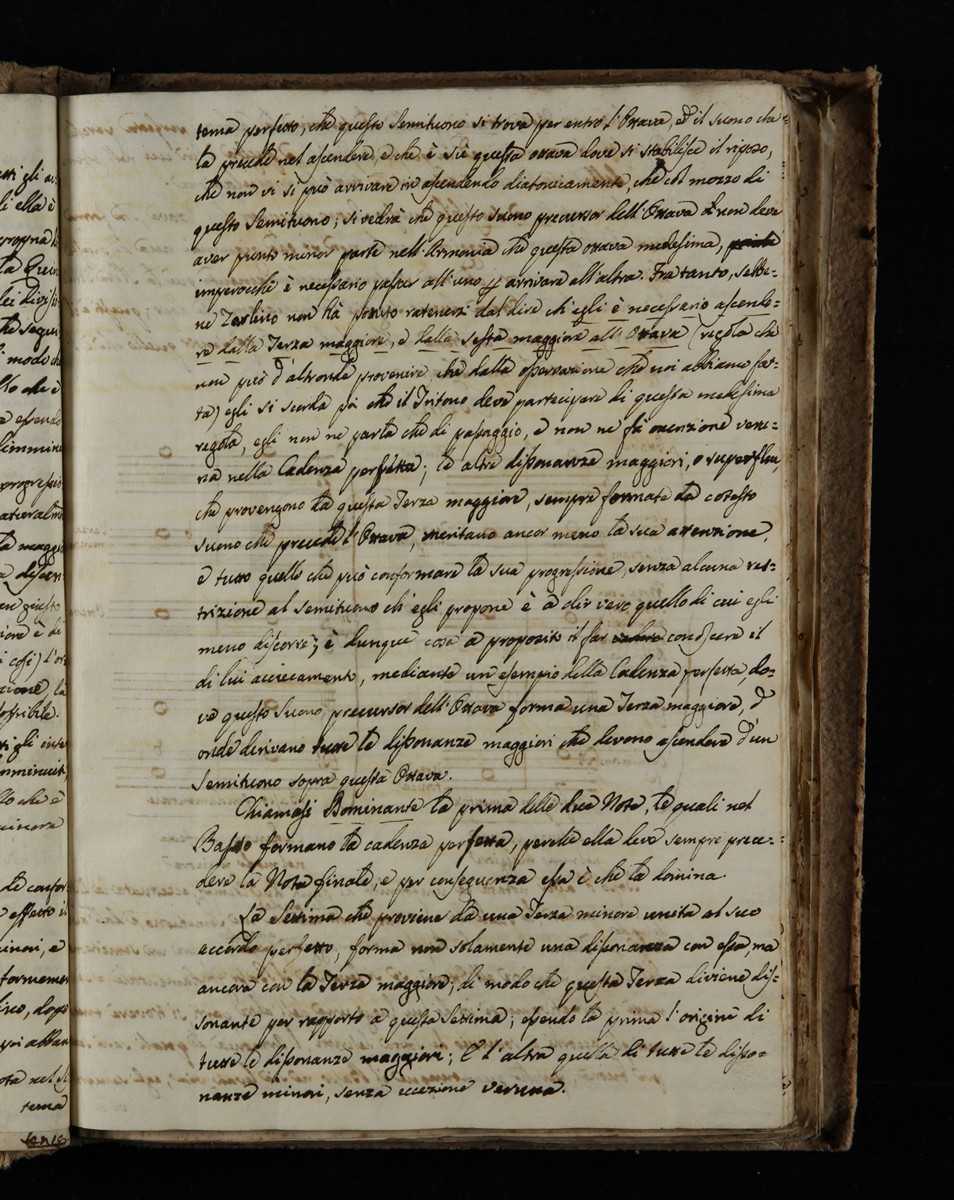 tema perfetto, che questo Semituono si trova per entro l'Ottava, ed il suono che
la precede nel ascendere, e che è siè questa ottava dove si stabilisce il riposo,
che non vi si può arrivare in ascendendo diatonicamente, che col mezzo di
questo Semituono; si vedrà che questo suono precursor dell'Ottava non deve
aver punto minor parte nell'Armonia che questa ottava medesima,
imperocchè è necessario passar all'uno arrivare all'altra. Fra tanto, sebbe=
ne Zarlino non hà potuto ratenersi dal dire ch'egli è necessario ascende=
re dalla Terza maggiore, e dalla sesta maggiore all'Ottava (regola che
non può d'altronde provenire che dalla osservazione che noi abbiamo fat=
ta) egli si scorda poi che il Tritono deve partecipare di questa medesima
regola, egli non ne parla che di passaggio, e non ne fà menzione veru=
na nella Cadenza perfetta; le altre dissonanze maggiori, o superflue,
che provengono da questa Terza maggiore, sempre formate da cotesto
suono che precede l'Ottava, meritano ancor meno la sua attenzione,
e tutto quello che può conformare la sua progressione, senza alcuna res=
trizione al semituono ch'egli propone è a dir vero quello di cui egli
meno discorre; è dunque cosa a proposito il far conoscere il
di lui acciecamento, mediante un'esempio della Cadenza perfetta do=
ve questo Suono precursor dell'Ottava forma una Terza maggiore, d'
onde derivano tutte le dissonanze maggiori che devono ascendere d'un
Semituono sopra questa Ottava.
Chiamasi Dominante la prima delle due Note, le quali nel
Basso formano la cadenza perfetta, perchè ella deve sempre prece=
dere la Nota finale, e per conseguenza essa è che la domina.
La Settima che proviene da una Terza minore unita al suo
accordo perfetto, forma non solamente una dissonanza con essa, ma
ancora con la Terza maggiore; di modo che questa Terza diviene dis=
sonante per rapporto a questa Settima; essendo la prima l'origine di
tutte le dissonanze maggiori; E l'altra quella di tutte le disso=
nanze minori, senza eccezione veruna.